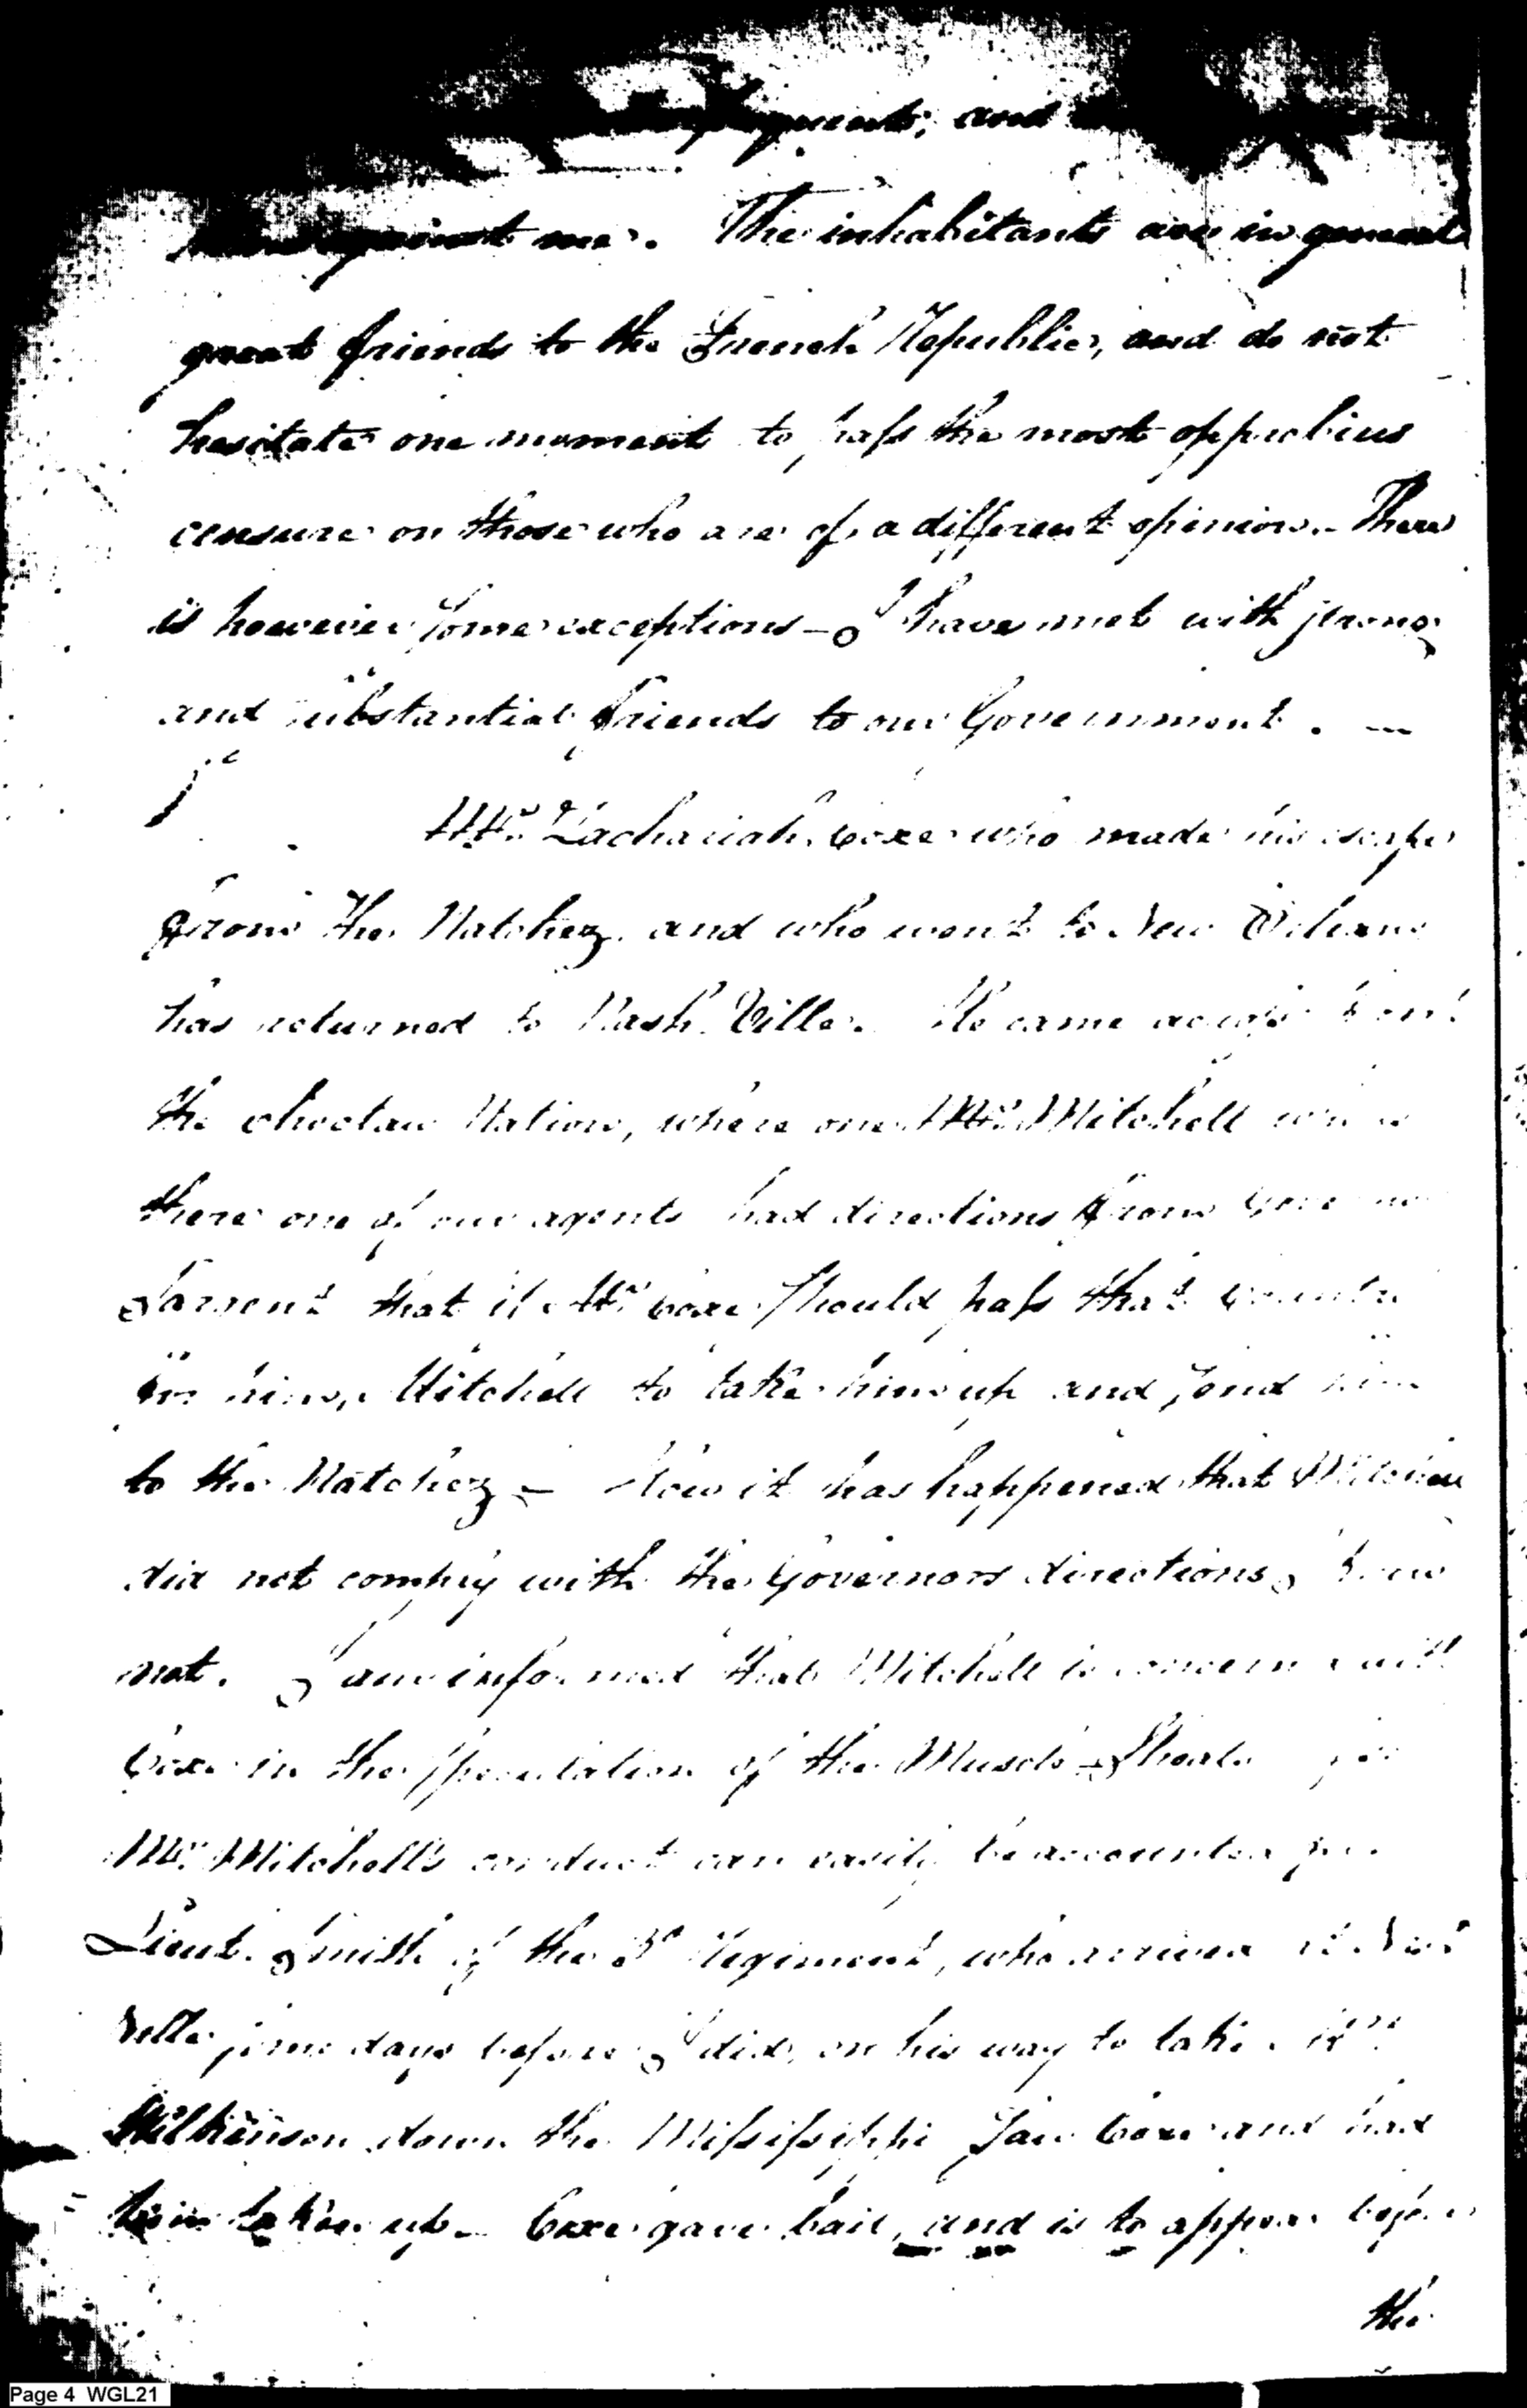 and
against me. The inhabitants are in general
great friends to the French Republic, and do not
hesitate one moment to pass the most opprobius
censure on those who are of a different opinion. There
is however some exceptions — I have met with strong
and substantial friends to our Government. —
Mr. Zachariah Coxe who made his escape
from the Natchez and who went to New Orleans
has returned to Nash Ville. He came
the Choctaw Nation, where one Mr. Mitchell
there one of our agents had directions from Governor
Sargent that if Mr. Coxe should pass that Country
for him, Mitchell to take him up and send him
to the Natchez — How it has happened that Mitchell
did not comply with the Governors directions I know
not. I am informed that Mitchell is concern'd with
Coxe in the speculation of the Muscle Shoals
Mr. Mitchell's conduct can easily be accounted for.
Lieut. Smith of the Regiment, who arrived at Nash
Ville some days before I did, on his way to take
Wilkinson down the Mississippi saw Coxe and had
him taken up. Coxe gave bail, and is to appear before
the
Page 4 WGL21